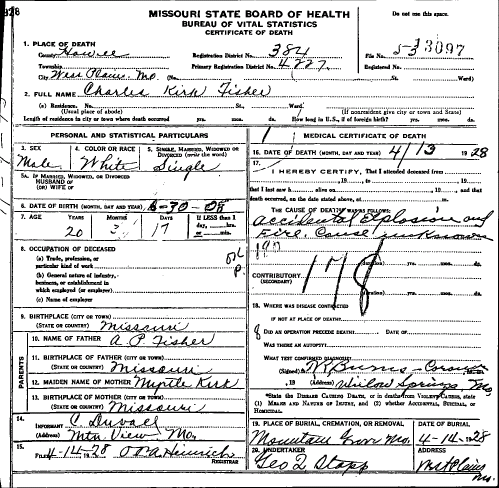 928
MISSOURI STATE BOARD OF HEALTH
BUREAU OF VITAL STATISTICS
CERTIFICATE OF DEATH
Do not use this space.
1. PLACE OF DEATH
County Howell
Registration District No. 384
File No. 13097
Township
Primary Registration District No. 4227
Registered No. 53
City West Plains, Mo. (No. St. Ward)
2. FULL NAME Charles Kirk Fisher
(a) Residence. No. St., Ward.
(Usual place of abode) (If nonresident give city or town and State)
Length of residence in city or town where death occurred yrs. mos. ds. How long in U.S., if of foreign birth? yrs. mos. ds.
PERSONAL AND STATISTICAL PARTICULARS
3. SEX Male
4. COLOR OR RACE White
5. SINGLE, MARRIED, WIDOWED OR DIVORCED (write the word) Single
5A. IF MARRIED, WIDOWED, OR DIVORCED
HUSBAND OF
(OR) WIFE OF
6. DATE OF BIRTH (MONTH, DAY AND YEAR) -30-08
7. AGE YEARS MONTHS DAYS If LESS than 1
day, hrs.
or min.
20 3 17
8. OCCUPATION OF DECEASED
(a) Trade, profession, or
particular kind of work
(b) General nature of industry,
business, or establishment in
which employed (or employer)
(c) Name of employer
9. BIRTHPLACE (CITY OR TOWN)
(STATE OR COUNTRY) Missouri
PARENTS
10. NAME OF FATHER A. P. Fisher
11. BIRTHPLACE OF FATHER (CITY OR TOWN)
(STATE OR COUNTRY) Missouri
12. MAIDEN NAME OF MOTHER Myrtle Kirk
13. BIRTHPLACE OF MOTHER (CITY OR TOWN)
(STATE OR COUNTRY) Missouri
14.
INFORMANT C. Duvall
(Address) Mtn View Mo.
15.
FILED 4-14-28 Heinrich
REGISTRAR
MEDICAL CERTIFICATE OF DEATH
16. DATE OF DEATH (MONTH, DAY AND YEAR) 4/13 1928
17.
I HEREBY CERTIFY, That I attended deceased from
, 19 , to , 19
that I last saw h alive on , 19 , and that
death occurred, on the date stated above, at m.
THE CAUSE OF DEATH WAS AS FOLLOWS:
Accidental Explosion and
Fire. Cause unknown
178
(duration) yrs. mos. ds.
CONTRIBUTORY
(SECONDARY)
(duration) yrs. mos. ds.
18. WHERE WAS DISEASE CONTRACTED
IF NOT AT PLACE OF DEATH?
DID AN OPERATION PRECEDE DEATH? DATE OF
WAS THERE AN AUTOPSY?
WHAT TEST CONFIRMED DIAGNOSIS?
(Signed) Burns - Coroner
, 19 (Address) Willow Springs, Mo.
*State the DISEASE CAUSING DEATH, or in deaths from VIOLENT CAUSES, state
(1) MEANS AND NATURE OF INJURY, and (2) whether ACCIDENTAL, SUICIDAL, or
HOMICIDAL.
19. PLACE OF BURIAL, CREMATION, OR REMOVAL
DATE OF BURIAL
Mountain Grove Mo. 4-14-1928
20. UNDERTAKER
ADDRESS
Geo Q Stapp
West Plains
Mo